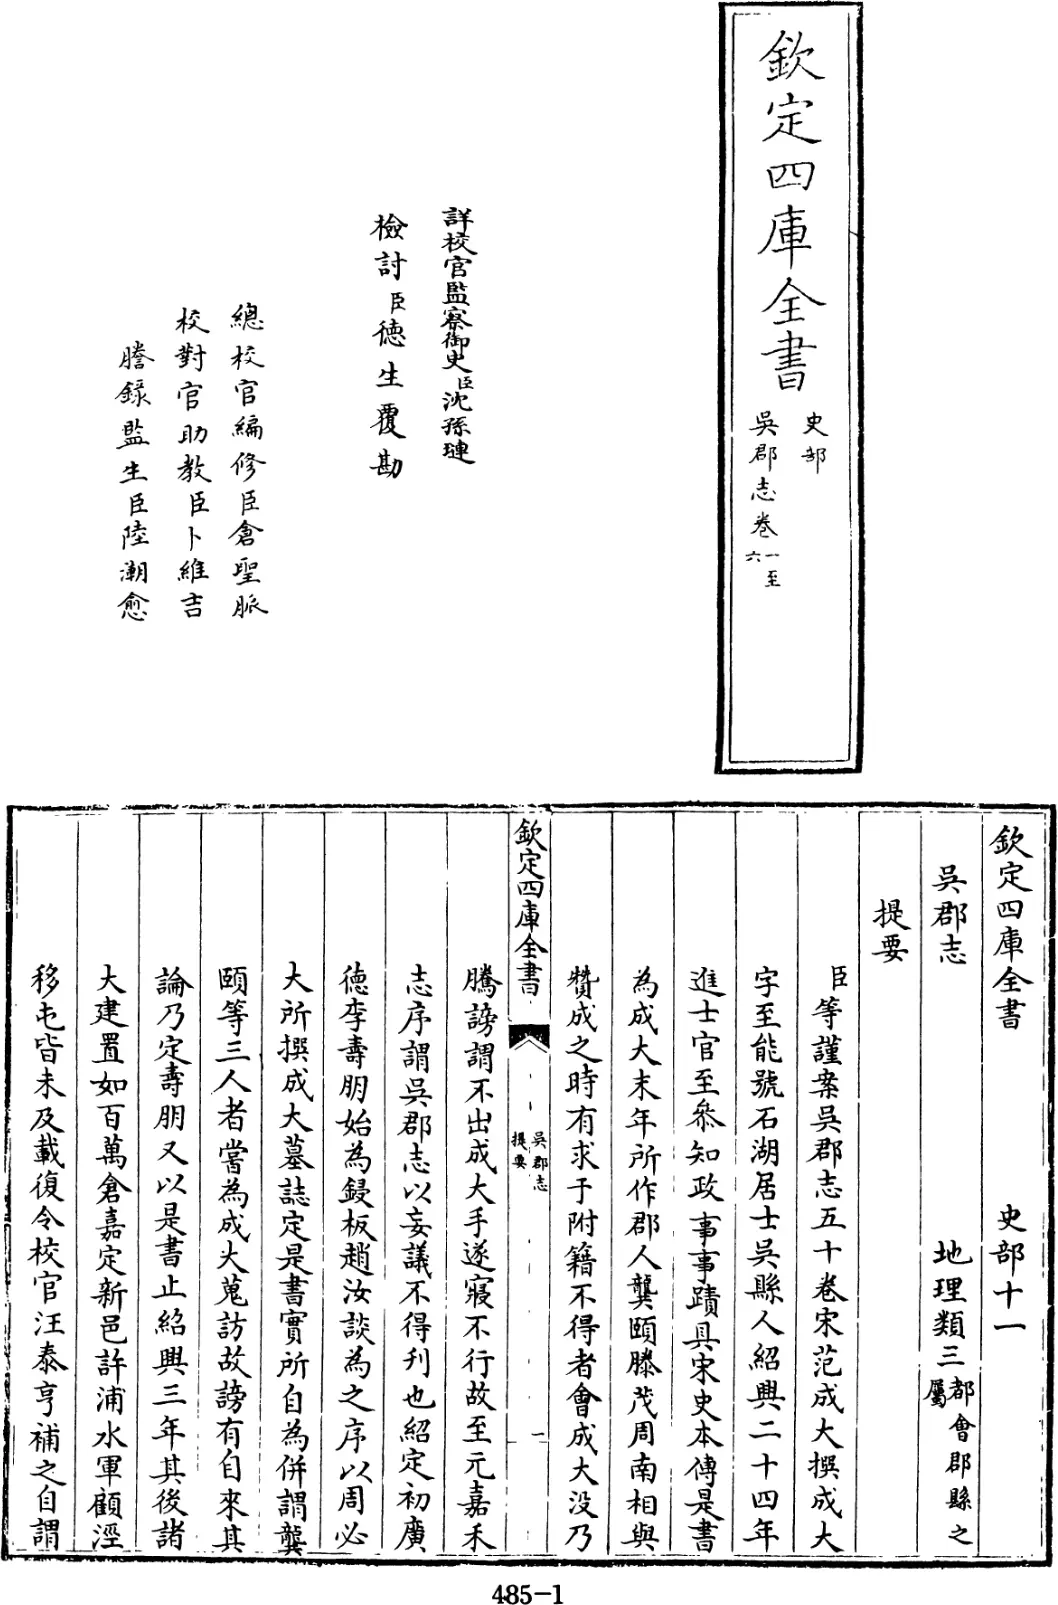 欽定四庫全書
史部
吳郡志卷一至六
詳校官監察御史臣沈孫璉
檢討臣德生覆勘
總校官編修臣倉聖脈
校對官助教臣卜維吉
謄錄監生臣陸潮愈
欽定四庫全書 史部十一
吳郡志 地理類三都會郡縣之屬
提要
臣等謹案吳郡志五十卷宋范成大撰成大
字至能號石湖居士吳縣人紹興二十四年
進士官至參知政事事蹟具宋史本傳是書
為成大末年所作郡人龔頤滕茂周南相與
贊成之時有求于附籍不得者會成大沒乃
欽定四庫全書
吳郡志
提要
一
騰謗謂不出成大手遂寢不行故至元嘉禾
志序謂吳郡志以妄議不得刋也紹定初廣
德李壽朋始為鋟板趙汝談為之序以周必
大所撰成大墓誌定是書實所自為併謂龔
頤等三人者當為成大蒐訪故謗有自來其
論乃定壽朋又以是書止紹興三年其後諸
大建置如百萬倉嘉定新邑許浦水軍顧逕
移屯皆未及載復令校官汪泰亨補之自謂
485-1